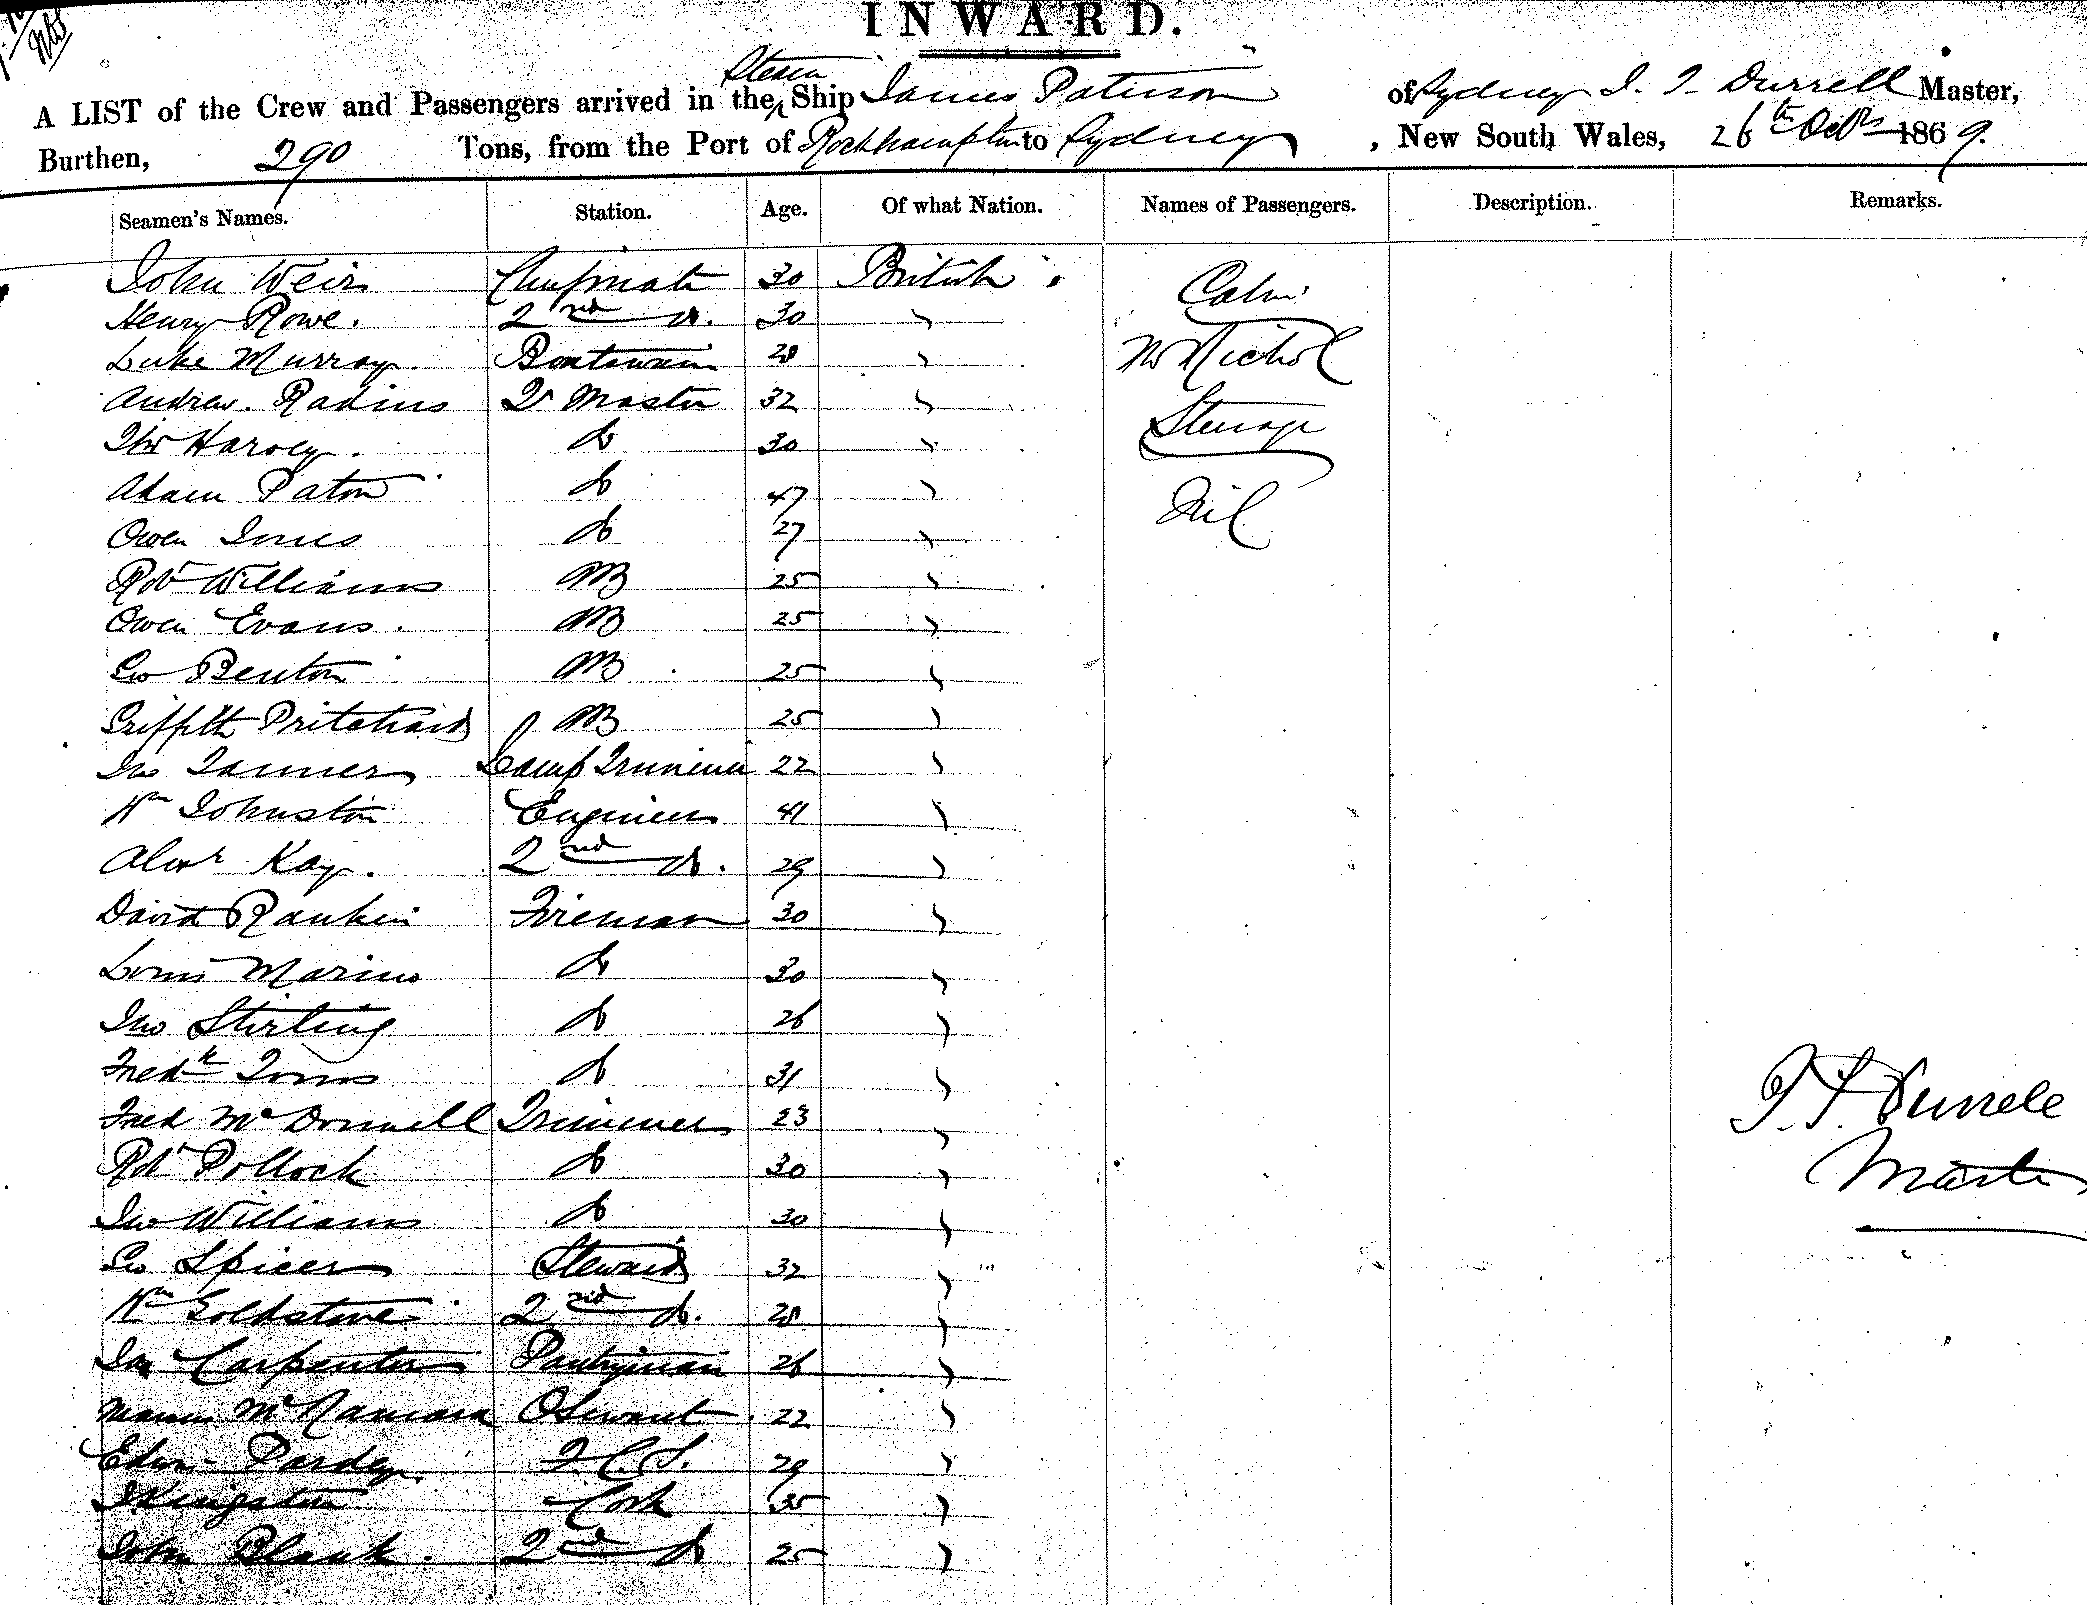 INWARD.
A LIST of the Crew and Passengers arrived in the Steam Ship James Paterson of Sydney J. T. Durrell Master,
Burthen, 290 Tons, from the Port of Rockhampton to Sydney, New South Wales, 26th Octr 1869.
Seamen's Names. Station. Age. Of what Nation. Names of Passengers. Description. Remarks.
John Weir Chief mate 30 British Cabin
Henry Rowe. 2nd do. 30 "
Luke Murray. Boatswain 28 " Mr Nichol
Andrew Radins Qr Master 32 " Steerage
Thos Harvey. do 30 "
Adam Paton do 47 " Nil
Owen Jones do 27 "
Robt Williams AB 25 "
Owen Evans. AB 25 "
Geo Benton AB 25 "
Griffith Pritchard AB 25 "
Jno Tanner Lamp Trimmer 22 "
Wm Johnston Engineer 41 "
Alexr Kay. 2nd do. 29 "
David Rankin Fireman 30 "
Louis Marino do 30 "
Jno Stirling do 26 "
Fredk Toms do 31 "
Fred McDonnell Trimmer 23 "
Robt Pollock do 30 "
Jno Williams do 30 "
Geo Spicer Steward 32 "
Wm Goldstone 2nd do. 28 "
Jno Carpenter Pantryman 26 "
McNamara 22 "
Edwn Pardey. F. C. S. 29 "
J Kingston Cook 35 "
John Blank. 2nd do 25 "
J. T. Durrell
Master